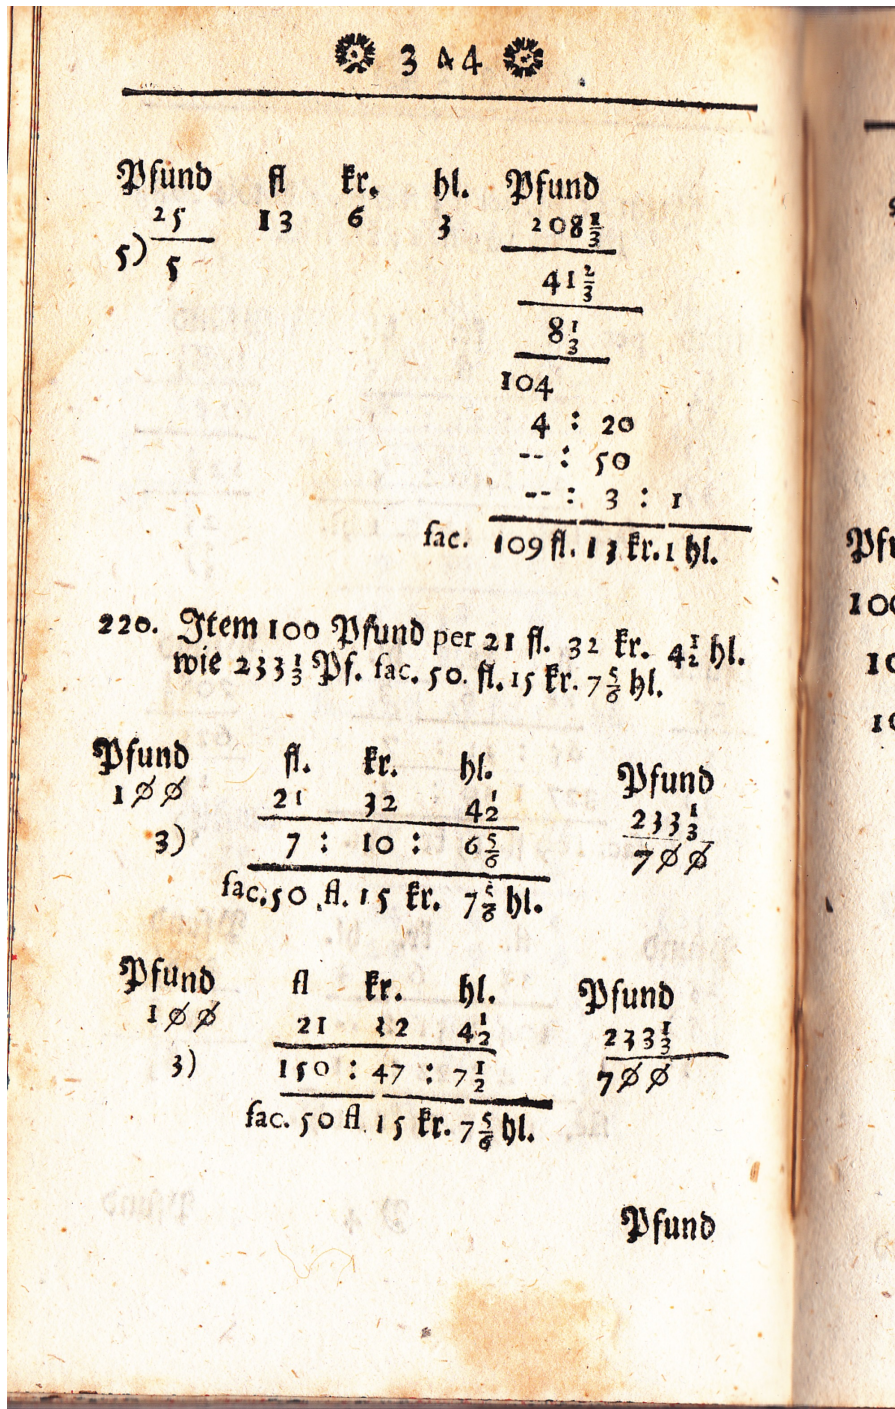 344
Pfund fl kr. hl. Pfund
25 13 6 3 208 1/3
5) 5
41 2/3
8 1/3
104
4 : 20
-- : 50
-- : 3 : 1
fac. 109 fl. 13 kr. 1 hl.
220. Item 100 Pfund per 21 fl. 32 kr. 4 1/2 hl.
wie 233 1/3 Pf. fac. 50. fl. 15 kr. 7 5/6 hl.
Pfund fl. kr. hl. Pfund
100 21 32 4 1/2 233 1/3
3) 7 : 10 : 6 5/6 700
fac. 50 fl. 15 kr. 7 5/6 hl.
Pfund fl kr. hl. Pfund
100 21 32 4 1/2 233 1/3
3) 150 : 47 : 7 1/2 700
fac. 50 fl. 15 kr. 7 5/6 hl.
Pfund